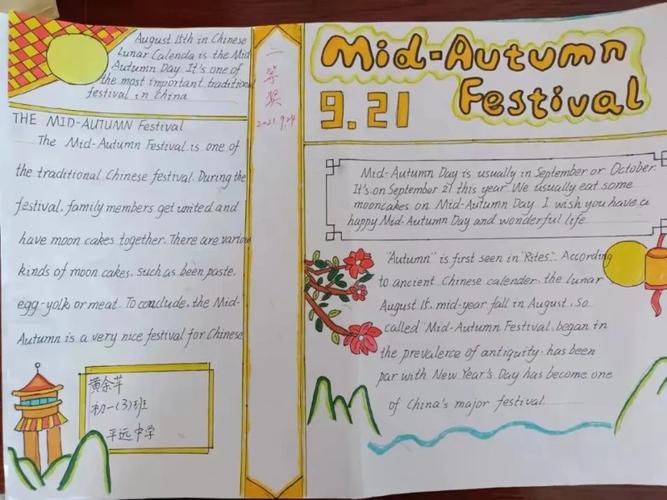 August 15th in Chinese
Lunar Calenda is the Mid
Autumn Day. It's one of
the most important traditional
festival in China
THE MID-AUTUMN Festival
The Mid-Autumn Festival is one of
the traditional Chinese festival. During the
festival, family members get united and
have moon cakes together. There are various
kinds of moon cakes, such as been paste,
egg-yolk or meat. To conclude, the Mid-
Autumn is a very nice festival for Chinese
黄余芊
初一(3)班
平远中学
二等奖
2021.9.24
Mid-Autumn
9.21 Festival
Mid-Autumn Day is usually in September or October.
It's on September 21 this year We usually eat some
mooncakes on Mid-Autumn Day. I wish you have a
happy Mid-Autumn Day and wonderful life
"Autumn" is first seen in "Rites". According
to ancient Chinese calender, the lunar
August 15, mid-year fall in August, so
called Mid-Autumn Festival, began in
the prevalence of antiquity, has been
par with New Year's Day has become one
of China's major festival